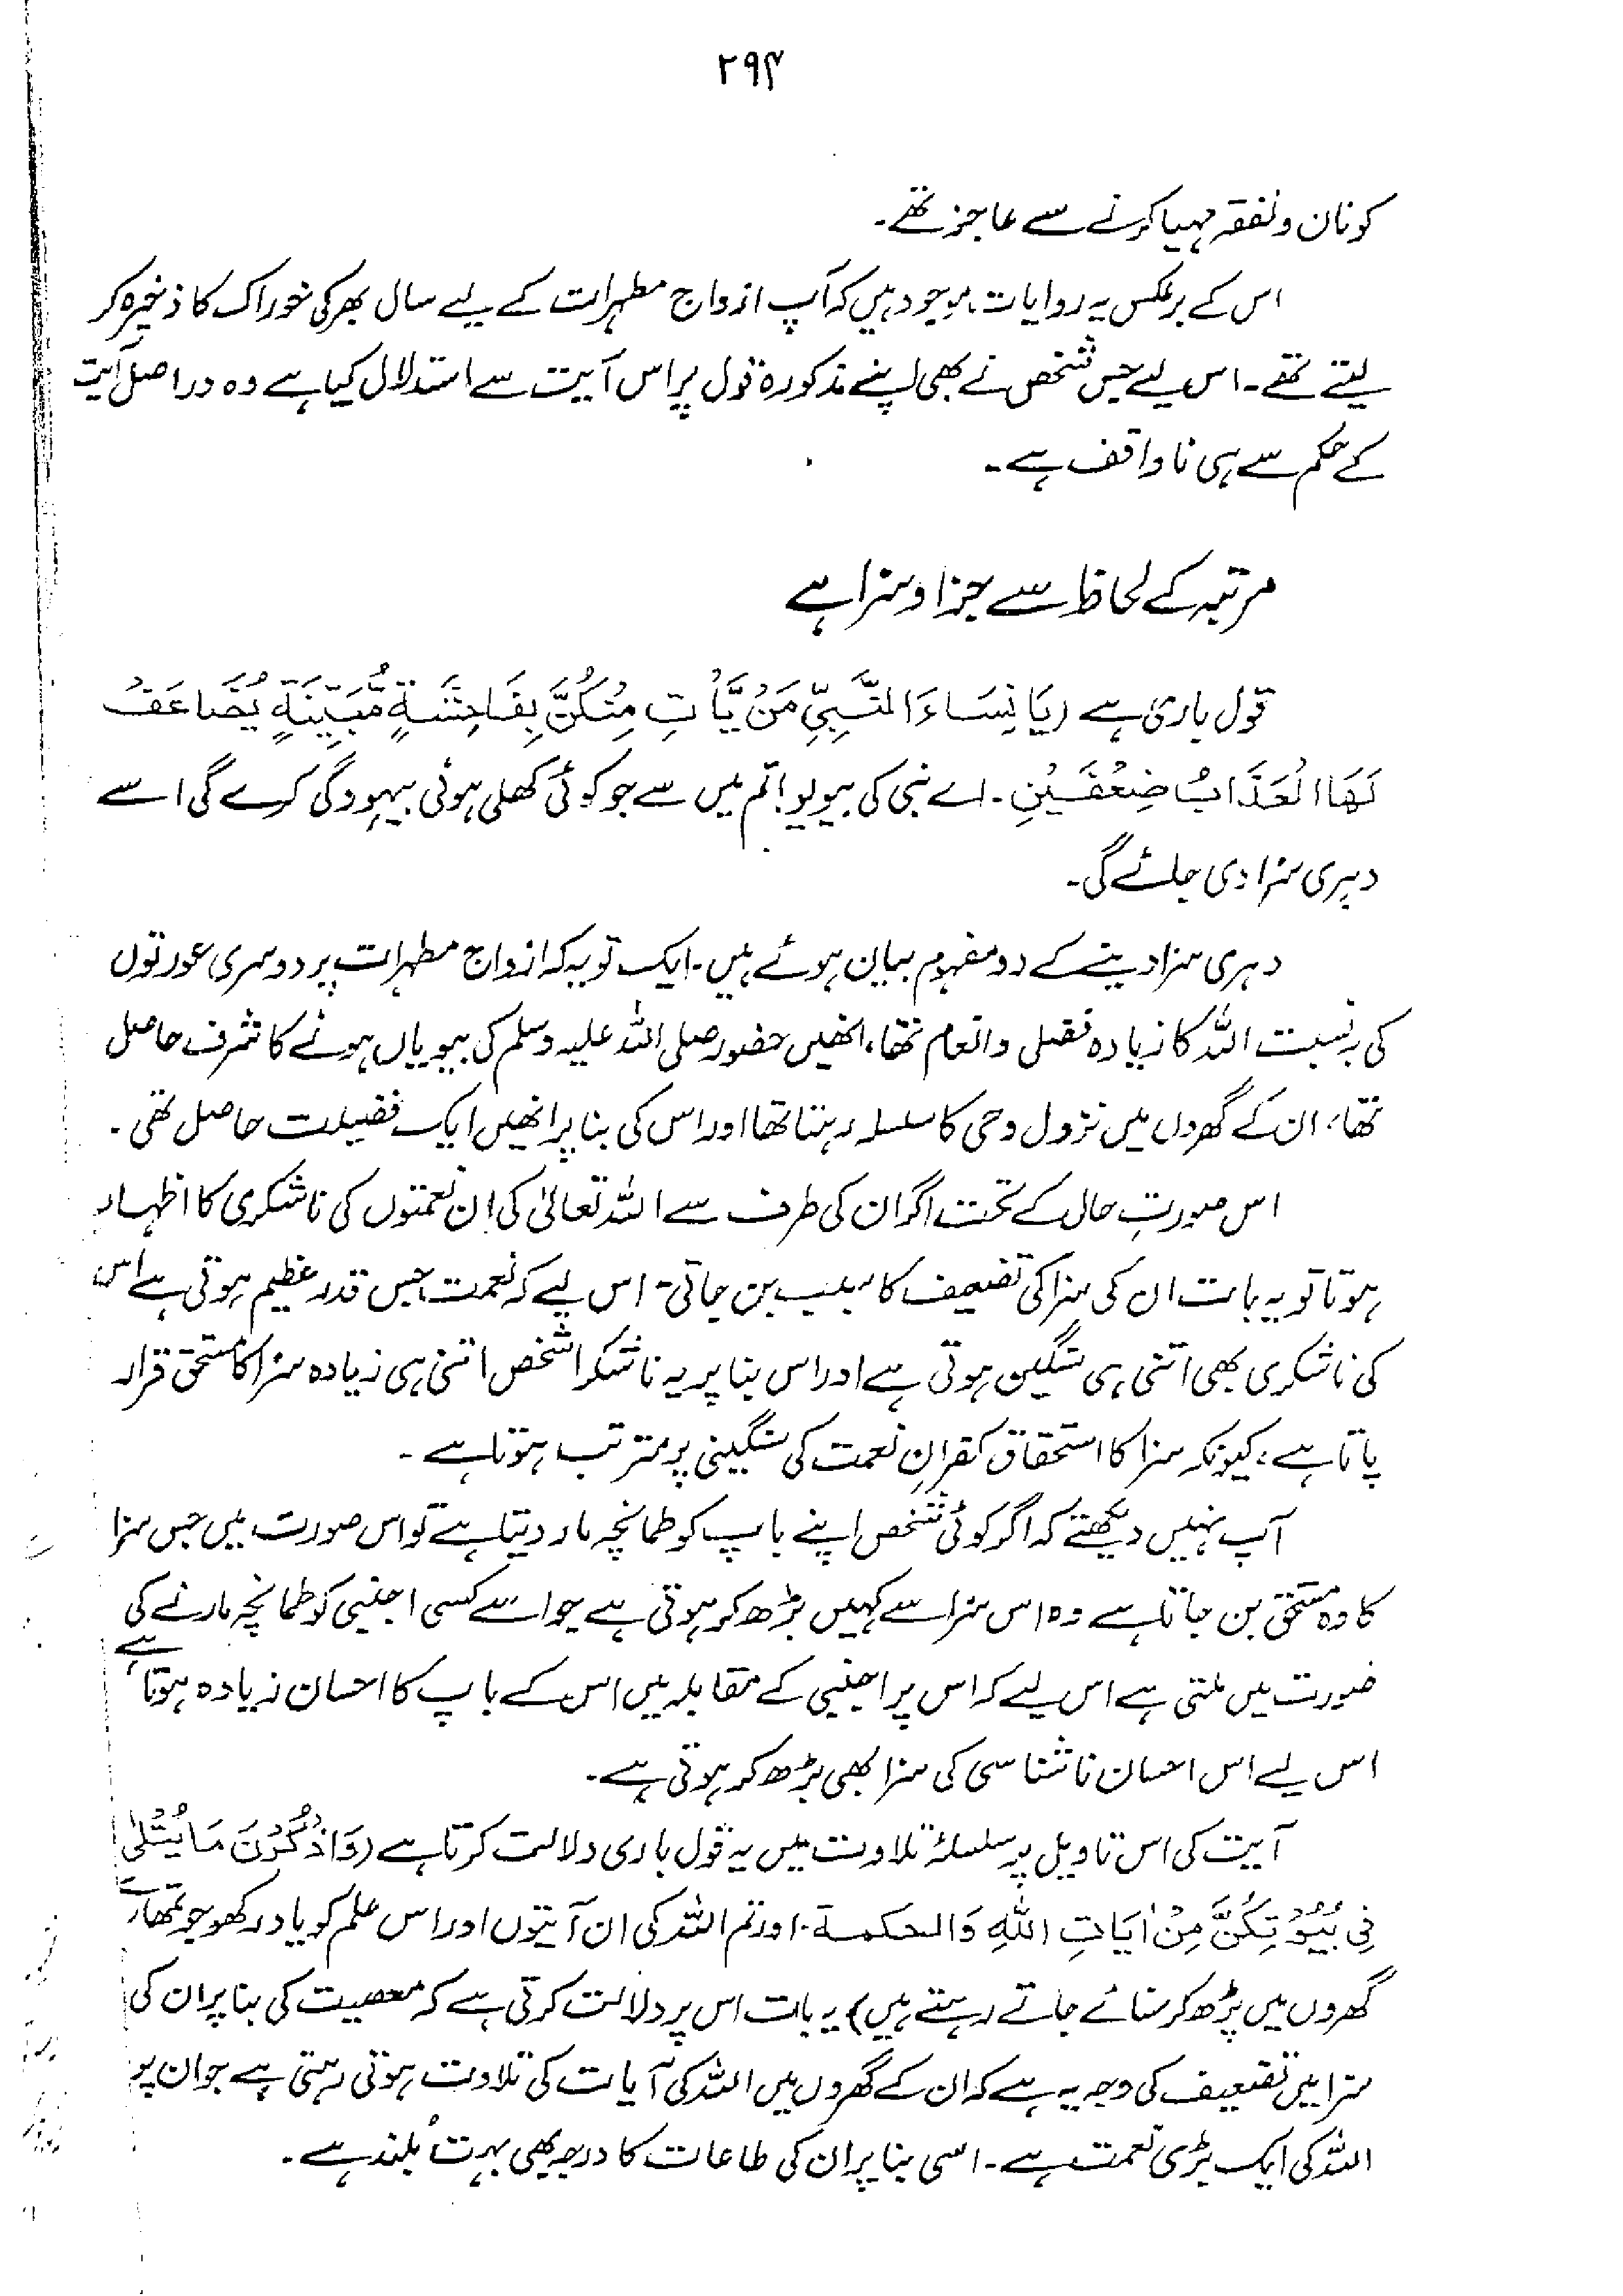 ۲۹۴
کو نان و نفقہ مہیا کرنے سے عاجز تھے۔
اس کے برعکس یہ روایات موجود ہیں کہ آپ ازواج مطہرات کے لیے سال بھر کی خوراک کا ذخیرہ کر
لیتے تھے۔ اس لیے جس شخص نے بھی اپنے مذکورہ قول پر اس آیت سے استدلال کیا ہے وہ دراصل آیت
کے حکم سے ہی ناواقف ہے۔
مرتبہ کے لحاظ سے جزا و سزا ہے
قول باری ہے (يَا نِسَاءَ النَّبِيِّ مَنْ يَّأْتِ مِنْكُنَّ بِفَاحِشَةٍ مُّبَيِّنَةٍ يُضَاعَفُ
لَهَا الْعَذَابُ ضِعْفَيْنِ۔ اے نبی کی بیویو! تم میں سے جو کوئی کھلی ہوئی بیہودگی کرے گی اسے
دہری سزا دی جائے گی۔
دہری سزا دینے کے دو مفہوم بیان ہوئے ہیں۔ ایک تو یہ کہ ازواج مطہرات پر دوسری عورتوں
کی بہ نسبت اللہ کا زیادہ فضل و انعام تھا، انھیں حضور صلی اللہ علیہ وسلم کی بیویاں ہونے کا شرف حاصل
تھا، ان کے گھروں میں نزول وحی کا سلسلہ رہتا تھا اور اس کی بنا پر انھیں ایک فضیلت حاصل تھی۔
اس صورتِ حال کے تحت اگر ان کی طرف سے اللہ تعالیٰ کی ان نعمتوں کی ناشکری کا اظہار
ہوتا تو یہ بات ان کی سزا کی تضعیف کا سبب بن جاتی۔ اس لیے کہ نعمت جس قدر عظیم ہوتی ہے اس
کی ناشکری بھی اتنی ہی سنگین ہوتی ہے اور اس بنا پر یہ ناشکرا شخص اتنی ہی زیادہ سزا کا مستحق قرار
پاتا ہے، کیونکہ سزا کا استحقاق کفرانِ نعمت کی سنگینی پر مترتب ہوتا ہے۔
آپ نہیں دیکھتے کہ اگر کوئی شخص اپنے باپ کو طمانچہ مار دیتا ہے تو اس صورت میں جس سزا
کا وہ مستحق بن جاتا ہے وہ اس سزا سے کہیں بڑھ کر ہوتی ہے جو اسے کسی اجنبی کو طمانچہ مارنے کی
صورت میں ملتی ہے اس لیے کہ اس پر اجنبی کے مقابلہ میں اس کے باپ کا احسان زیادہ ہوتا ہے
اس لیے اس احسان ناشناسی کی سزا بھی بڑھ کر ہوتی ہے۔
آیت کی اس تاویل پر سلسلۂ تلاوت میں یہ قول باری دلالت کرتا ہے (وَاذْكُرْنَ مَا يُتْلٰى
فِي بُيُوْتِكُنَّ مِنْ اٰيَاتِ اللّٰهِ وَالحكمة۔ اور تم اللہ کی ان آیتوں اور اس علم کو یاد رکھو جو تمھارے
گھروں میں پڑھ کر سنائے جاتے رہتے ہیں) یہ بات اس پر دلالت کرتی ہے کہ معصیت کی بنا پر ان کی
سزا میں تضعیف کی وجہ یہ ہے کہ ان کے گھروں میں اللہ کی آیات کی تلاوت ہوتی رہتی ہے جو ان پر
اللہ کی ایک بڑی نعمت ہے۔ اسی بنا پر ان کی طاعات کا درجہ بھی بہت بلند ہے۔